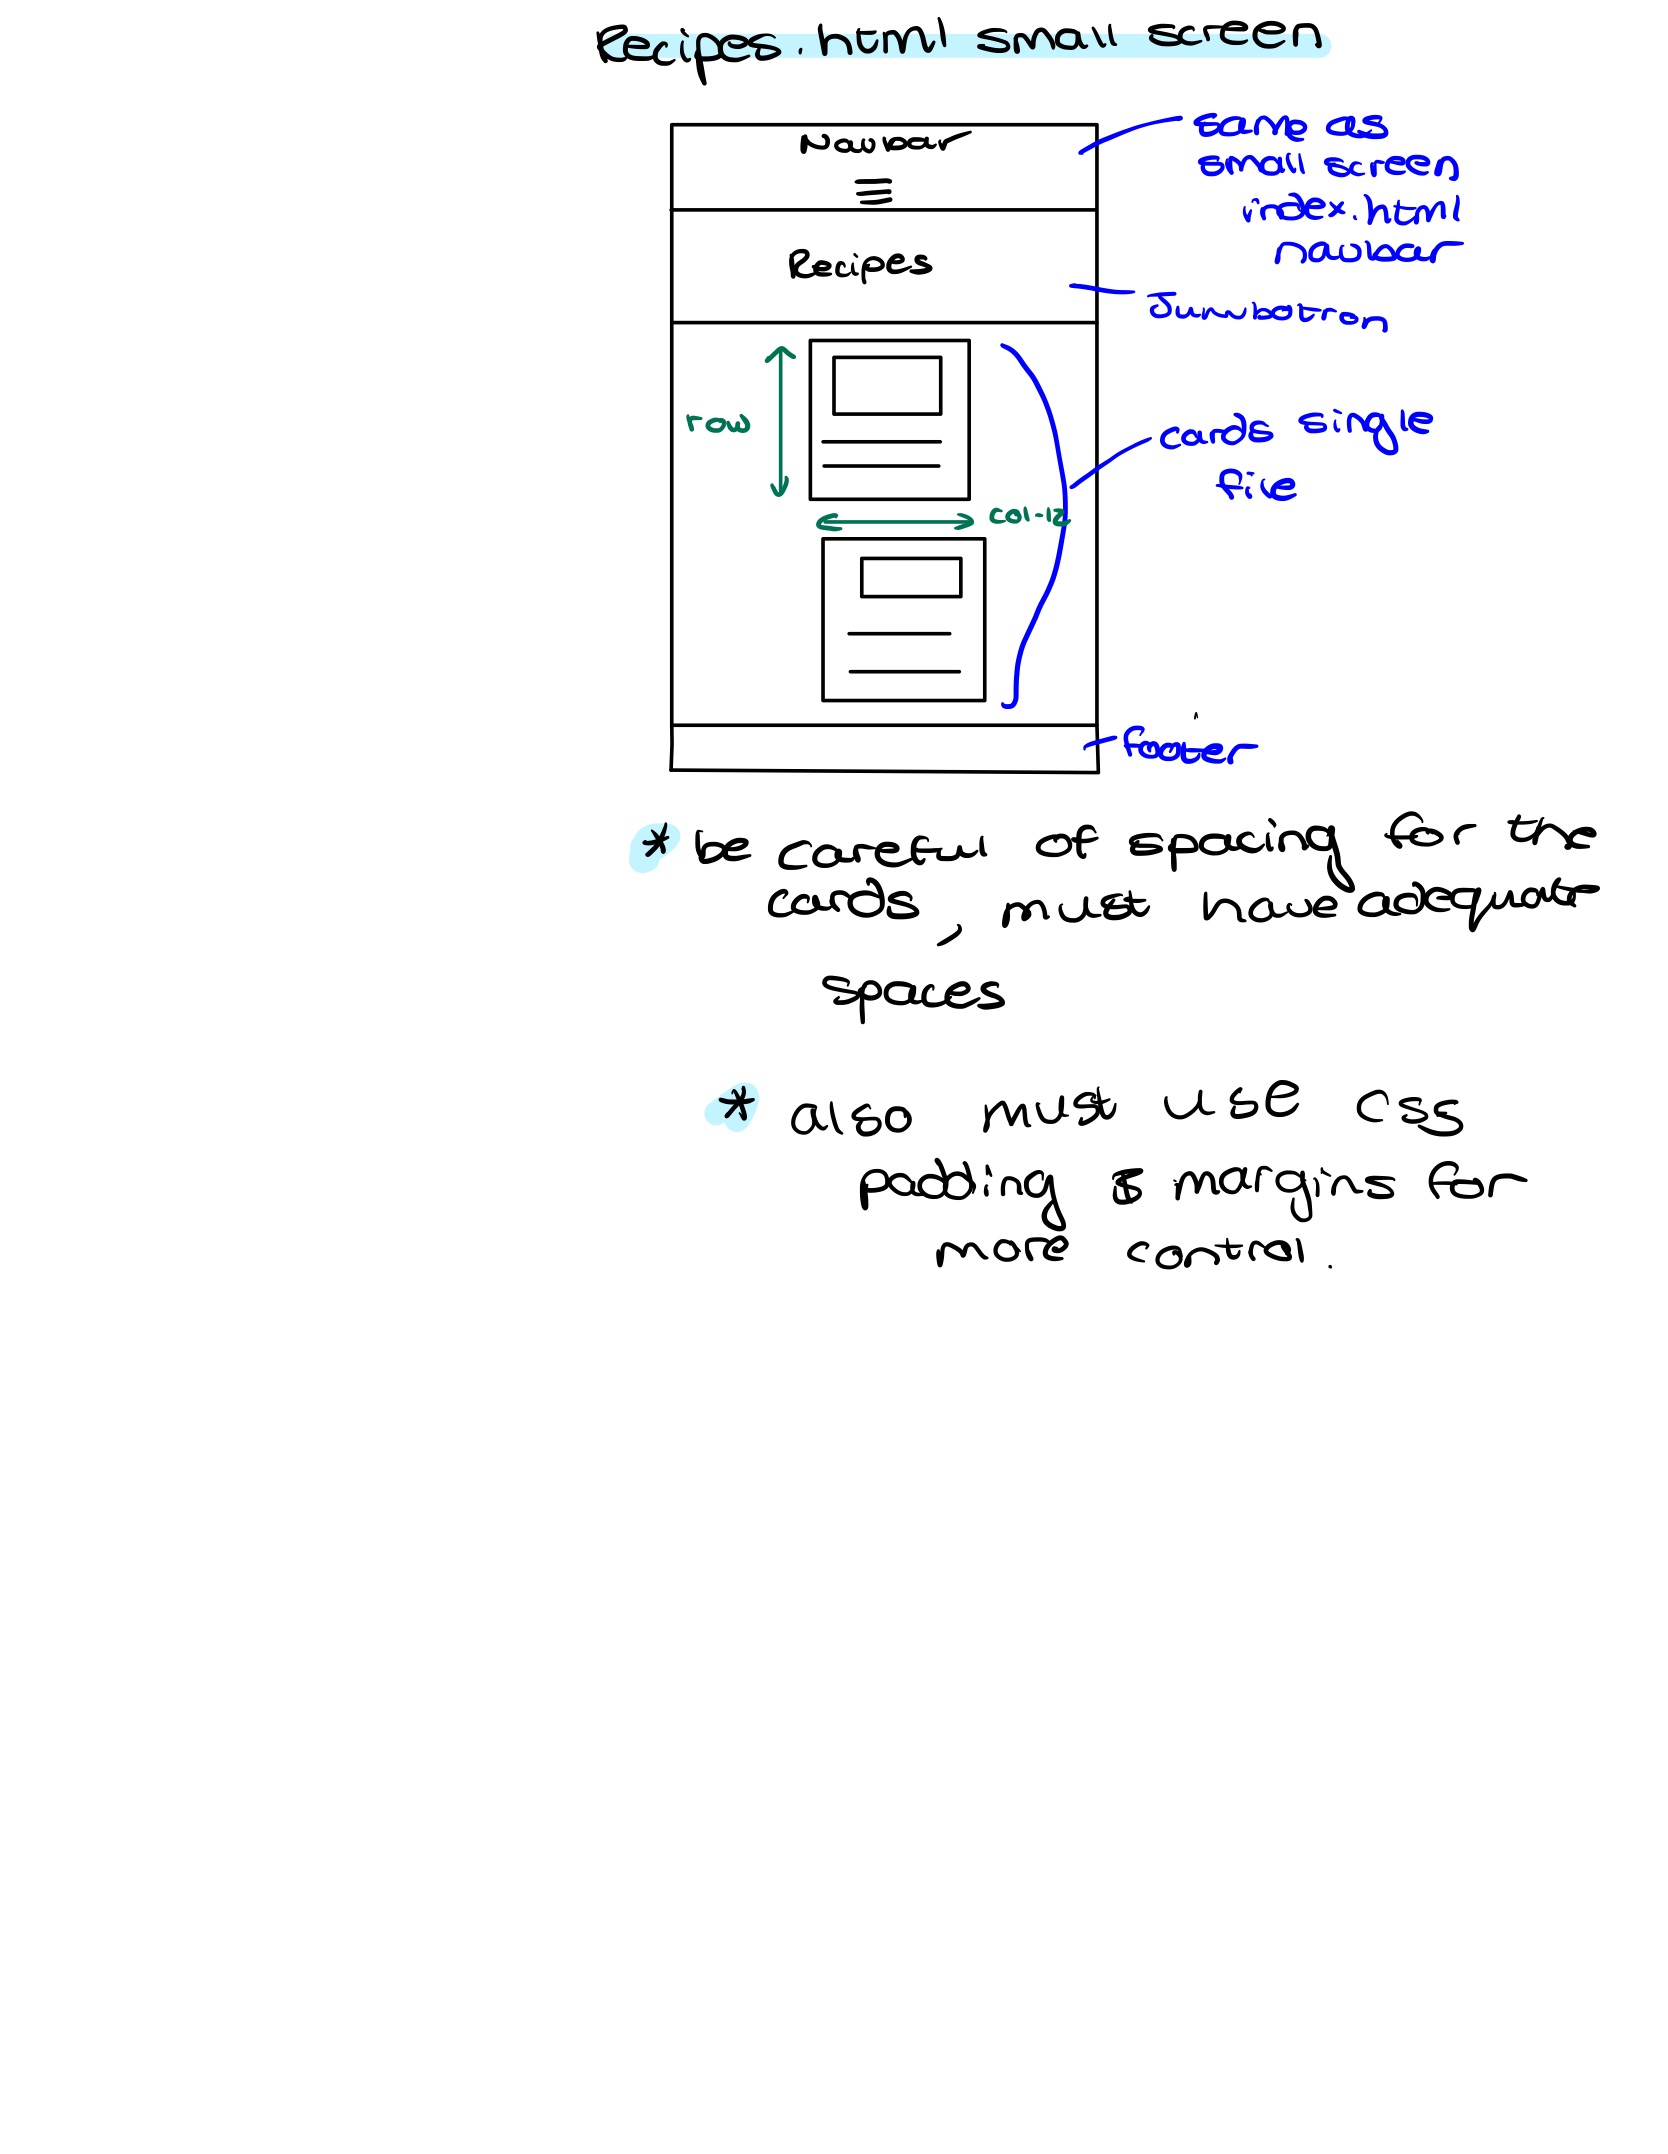 Recipes.html small screen
Navbar
same as
small screen
index.html
navbar
Recipes
Jumbotron
row
cards single
file
col-12
footer
* be careful of spacing for the
cards, must have adequate
spaces
* also must use css
padding & margins for
more control.